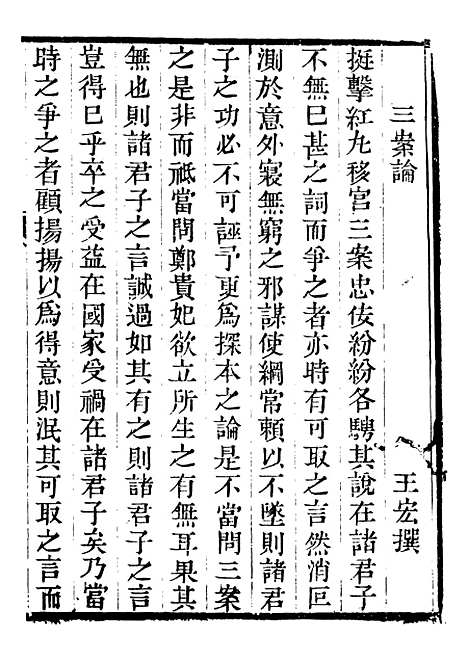 三案論
王宏撰
挺擊紅丸移宮三案忠佞紛紛各騁其說在諸君子
不無已甚之詞而爭之者亦時有可取之言然消叵
測於意外寢無窮之邪謀使綱常賴以不墜則諸君
子之功必不可誣予更爲探本之論是不當問三案
之是非而祗當問鄭貴妃欲立所生之有無耳果其
無也則諸君子之言誠過如其有之則諸君子之言
豈得已乎卒之受益在國家受禍在諸君子矣乃當
時之爭之者顧揚揚以爲得意則泯其可取之言而